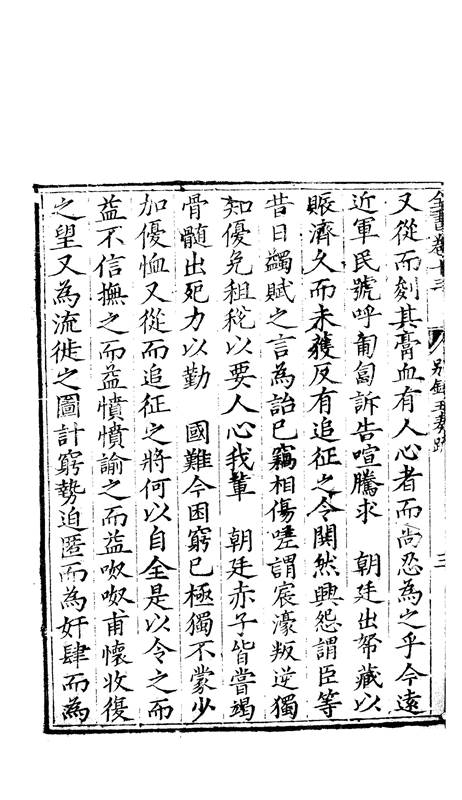 全書卷十三 別錄五奏疏 三
又從而剜其膏血有人心者而尚忍為之乎今遠
近軍民號呼匍匐訴告喧騰求 朝廷出帑藏以
賑濟久而未獲反有追征之令閧然興怨謂臣等
昔日蠲賦之言為詒已竊相傷嗟謂宸濠叛逆獨
知優免租稅以要人心我輩 朝廷赤子皆嘗竭
骨髓出死力以勤 國難今困窮已極獨不蒙少
加優恤又從而追征之將何以自全是以令之而
益不信撫之而益憤憤諭之而益呶呶甫懷收復
之望又為流徙之圖計窮勢迫匿而為奸肆而為